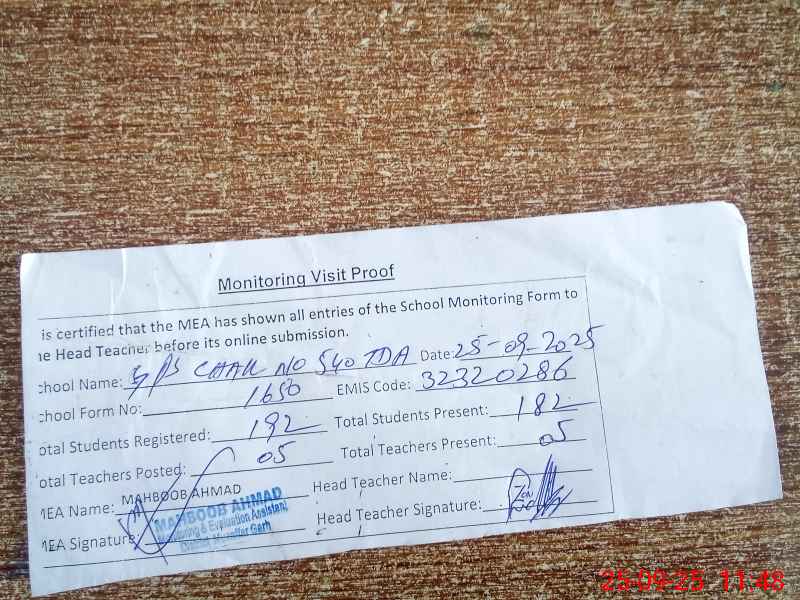 Monitoring Visit Proof
is certified that the MEA has shown all entries of the School Monitoring Form to
he Head Teacher before its online submission.
chool Name: GPS CHAK NO 540 TDA Date: 25-09-2025
chool Form No: 1650 EMIS Code: 32320286
otal Students Registered: 192 Total Students Present: 182
otal Teachers Posted: 05 Total Teachers Present: 05
MEA Name: MAHBOOB AHMAD Head Teacher Name:
MEA Signature: Head Teacher Signature:
MAHBOOB AHMAD
Monitoring & Evaluation Assistant
District Muzaffar Garh
25-09-25 11:48